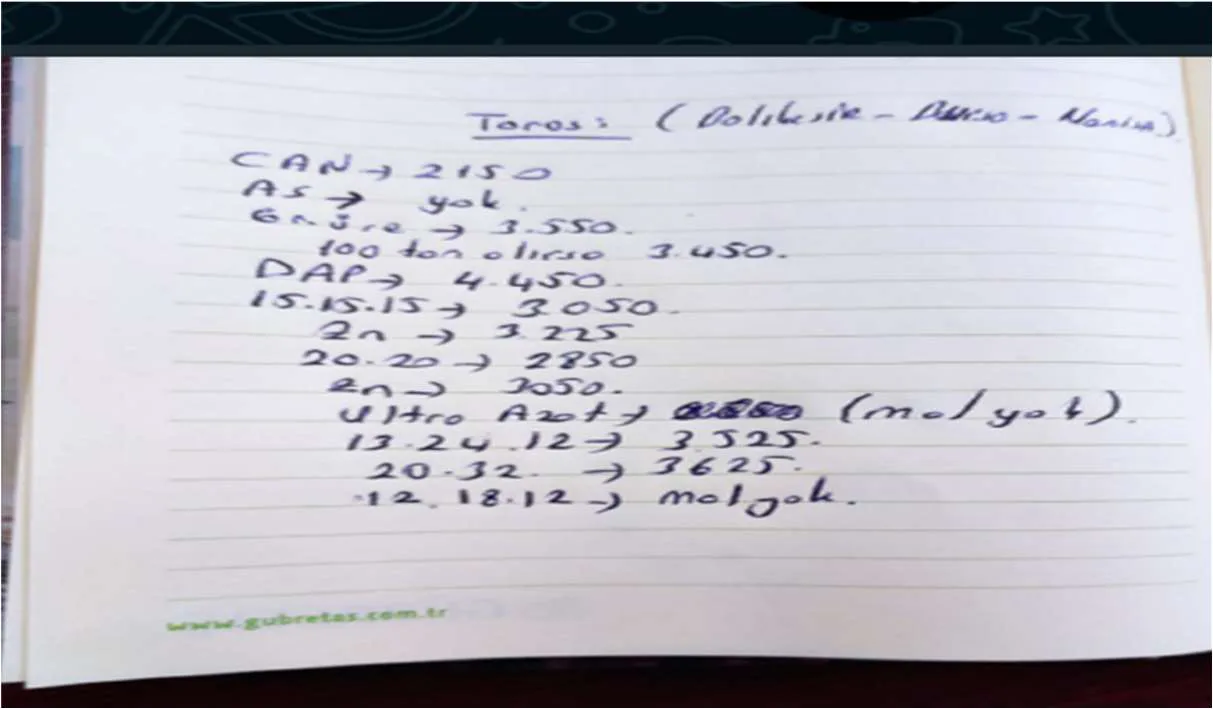 Toros: (Balıkesir - Bursa - Manisa)
CAN → 2150
AS → yok.
Gr. üre → 3.550.
100 ton olursa 3.450.
DAP → 4.450.
15.15.15 → 3.050.
Zn → 3.225
20.20 → 2850
Zn → 3050.
Ultra Azot → (mal yok).
13.24.12 → 3.525.
20.32. → 3625.
12.18.12 → mal yok.
www.gubretas.com.tr